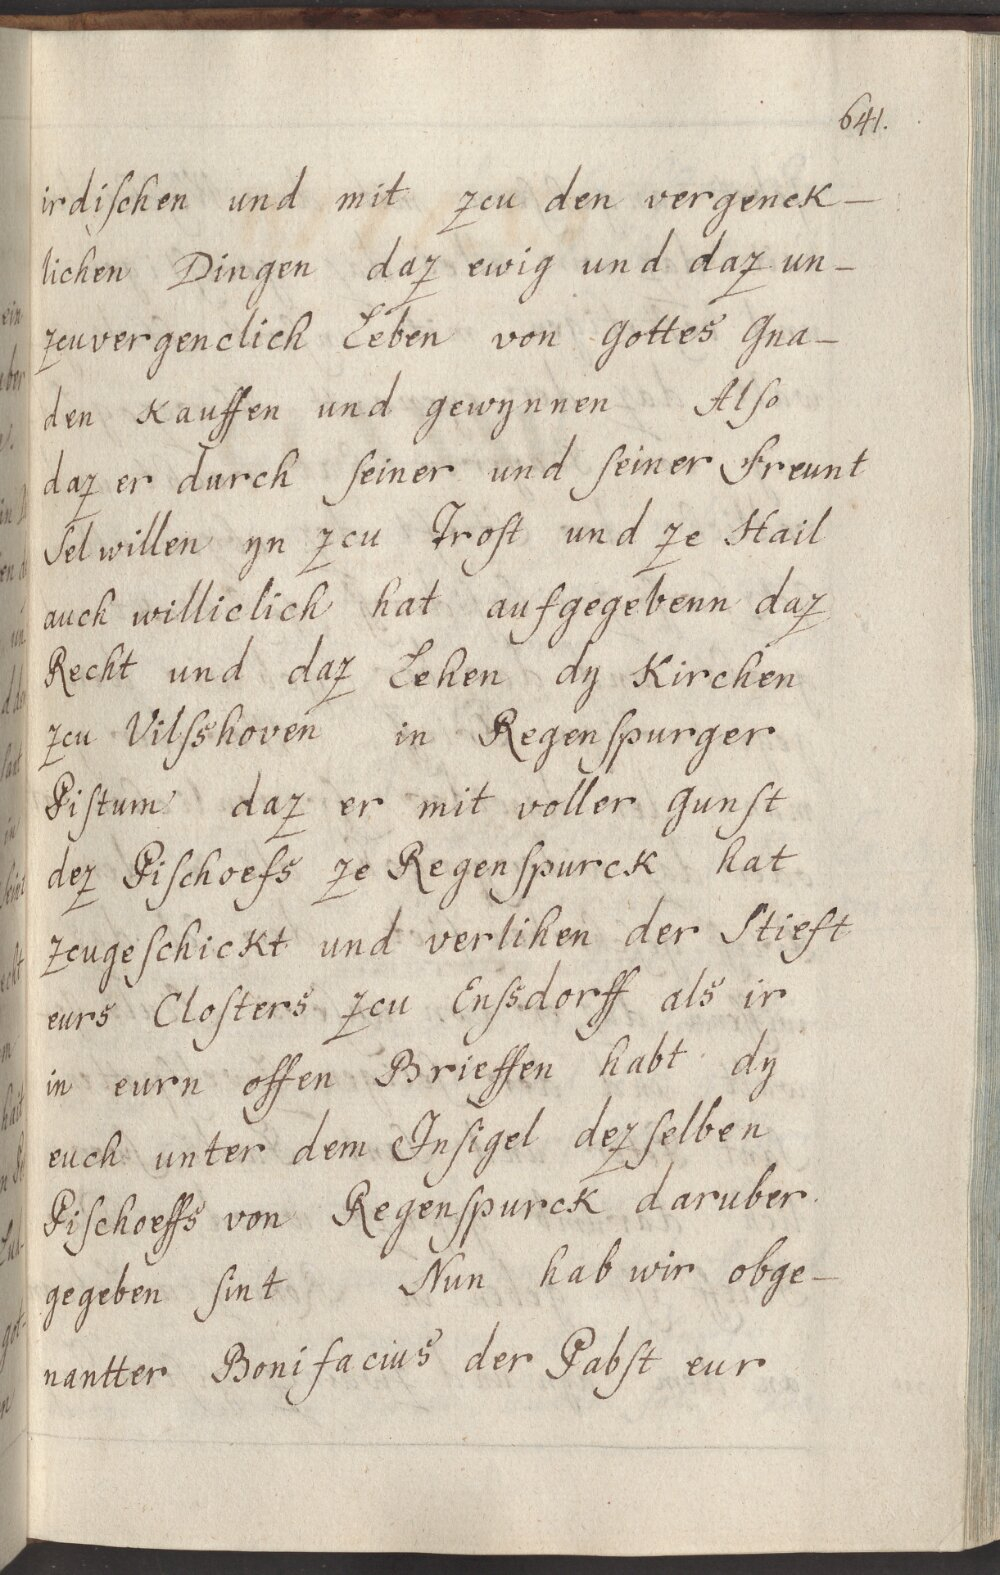 641.
irdiſchen und mit zcu den vergenck-
lichen Dingen daz ewig und daz un-
zcuvergenclich Leben von Gottes Gna-
den Kauffen und gewynnen Alſo
daz er durch ſeiner und ſeiner Freunt
Sel willen yn zcu Troſt und ze Hail
auch williclich hat aufgegebenn daz
Recht und daz Lehen dy Kirchen
zcu Vilsſhoven in Regenſpurger
Piſtum daz er mit voller Gunſt
dez Piſchoefs ze Regenſpurck hat
zcugeſchickt und verlihen der Stieft
eurs Cloſters zcu Enſsdorff als ir
in eurn offen Brieffen habt dy
euch unter dem Inſigel dezſelben
Piſchoeffs von Regenſpurck daruber
gegeben ſint Nun hab wir obge-
nantter Bonifacius der Pabſt eur